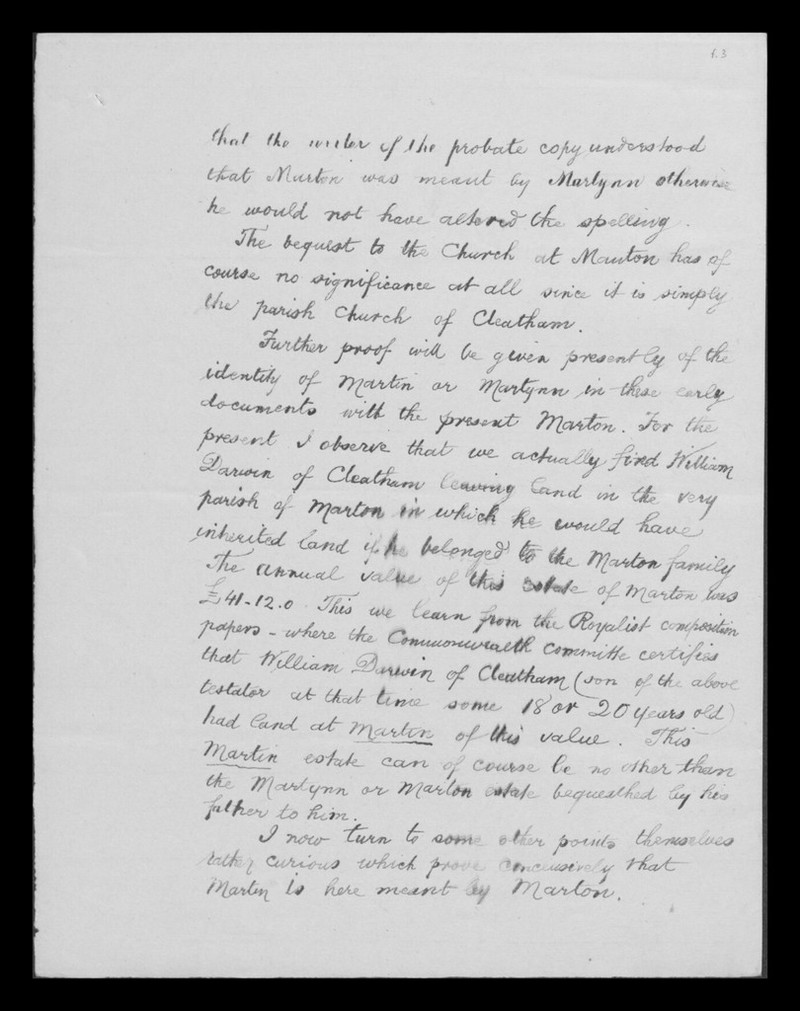 1.3
that the writer of the probate copy understood
that Marton was meant by Martynn otherwise
he would not have altered the spelling.
The bequest to the Church at Manton has of
course no significance at all since it is simply
the parish Church of Cleatham.
Further proof will be given presently of the
identity of Martin or Martynn in these early
documents with the present Marton. For the
present I observe that we actually find William
Darwin of Cleatham leaving land in the very
parish of Marton in which he would have
inherited land if he belonged to the Marton family
The annual value of this estate of Marton was
£41-12.0. This we learn from the Royalist composition
papers - where the Commonwealth Committe certifies
that William Darwin of Cleatham (son of the above
testator at that time some 18 or 20 years old)
had land at Martin of this value. This
Martin estate can of course be no other than
the Martynn or Marton estate bequeathed by his
father to him.
I now turn to some other points themselves
rather curious which prove conclusively that
Martin is here meant by Marton.